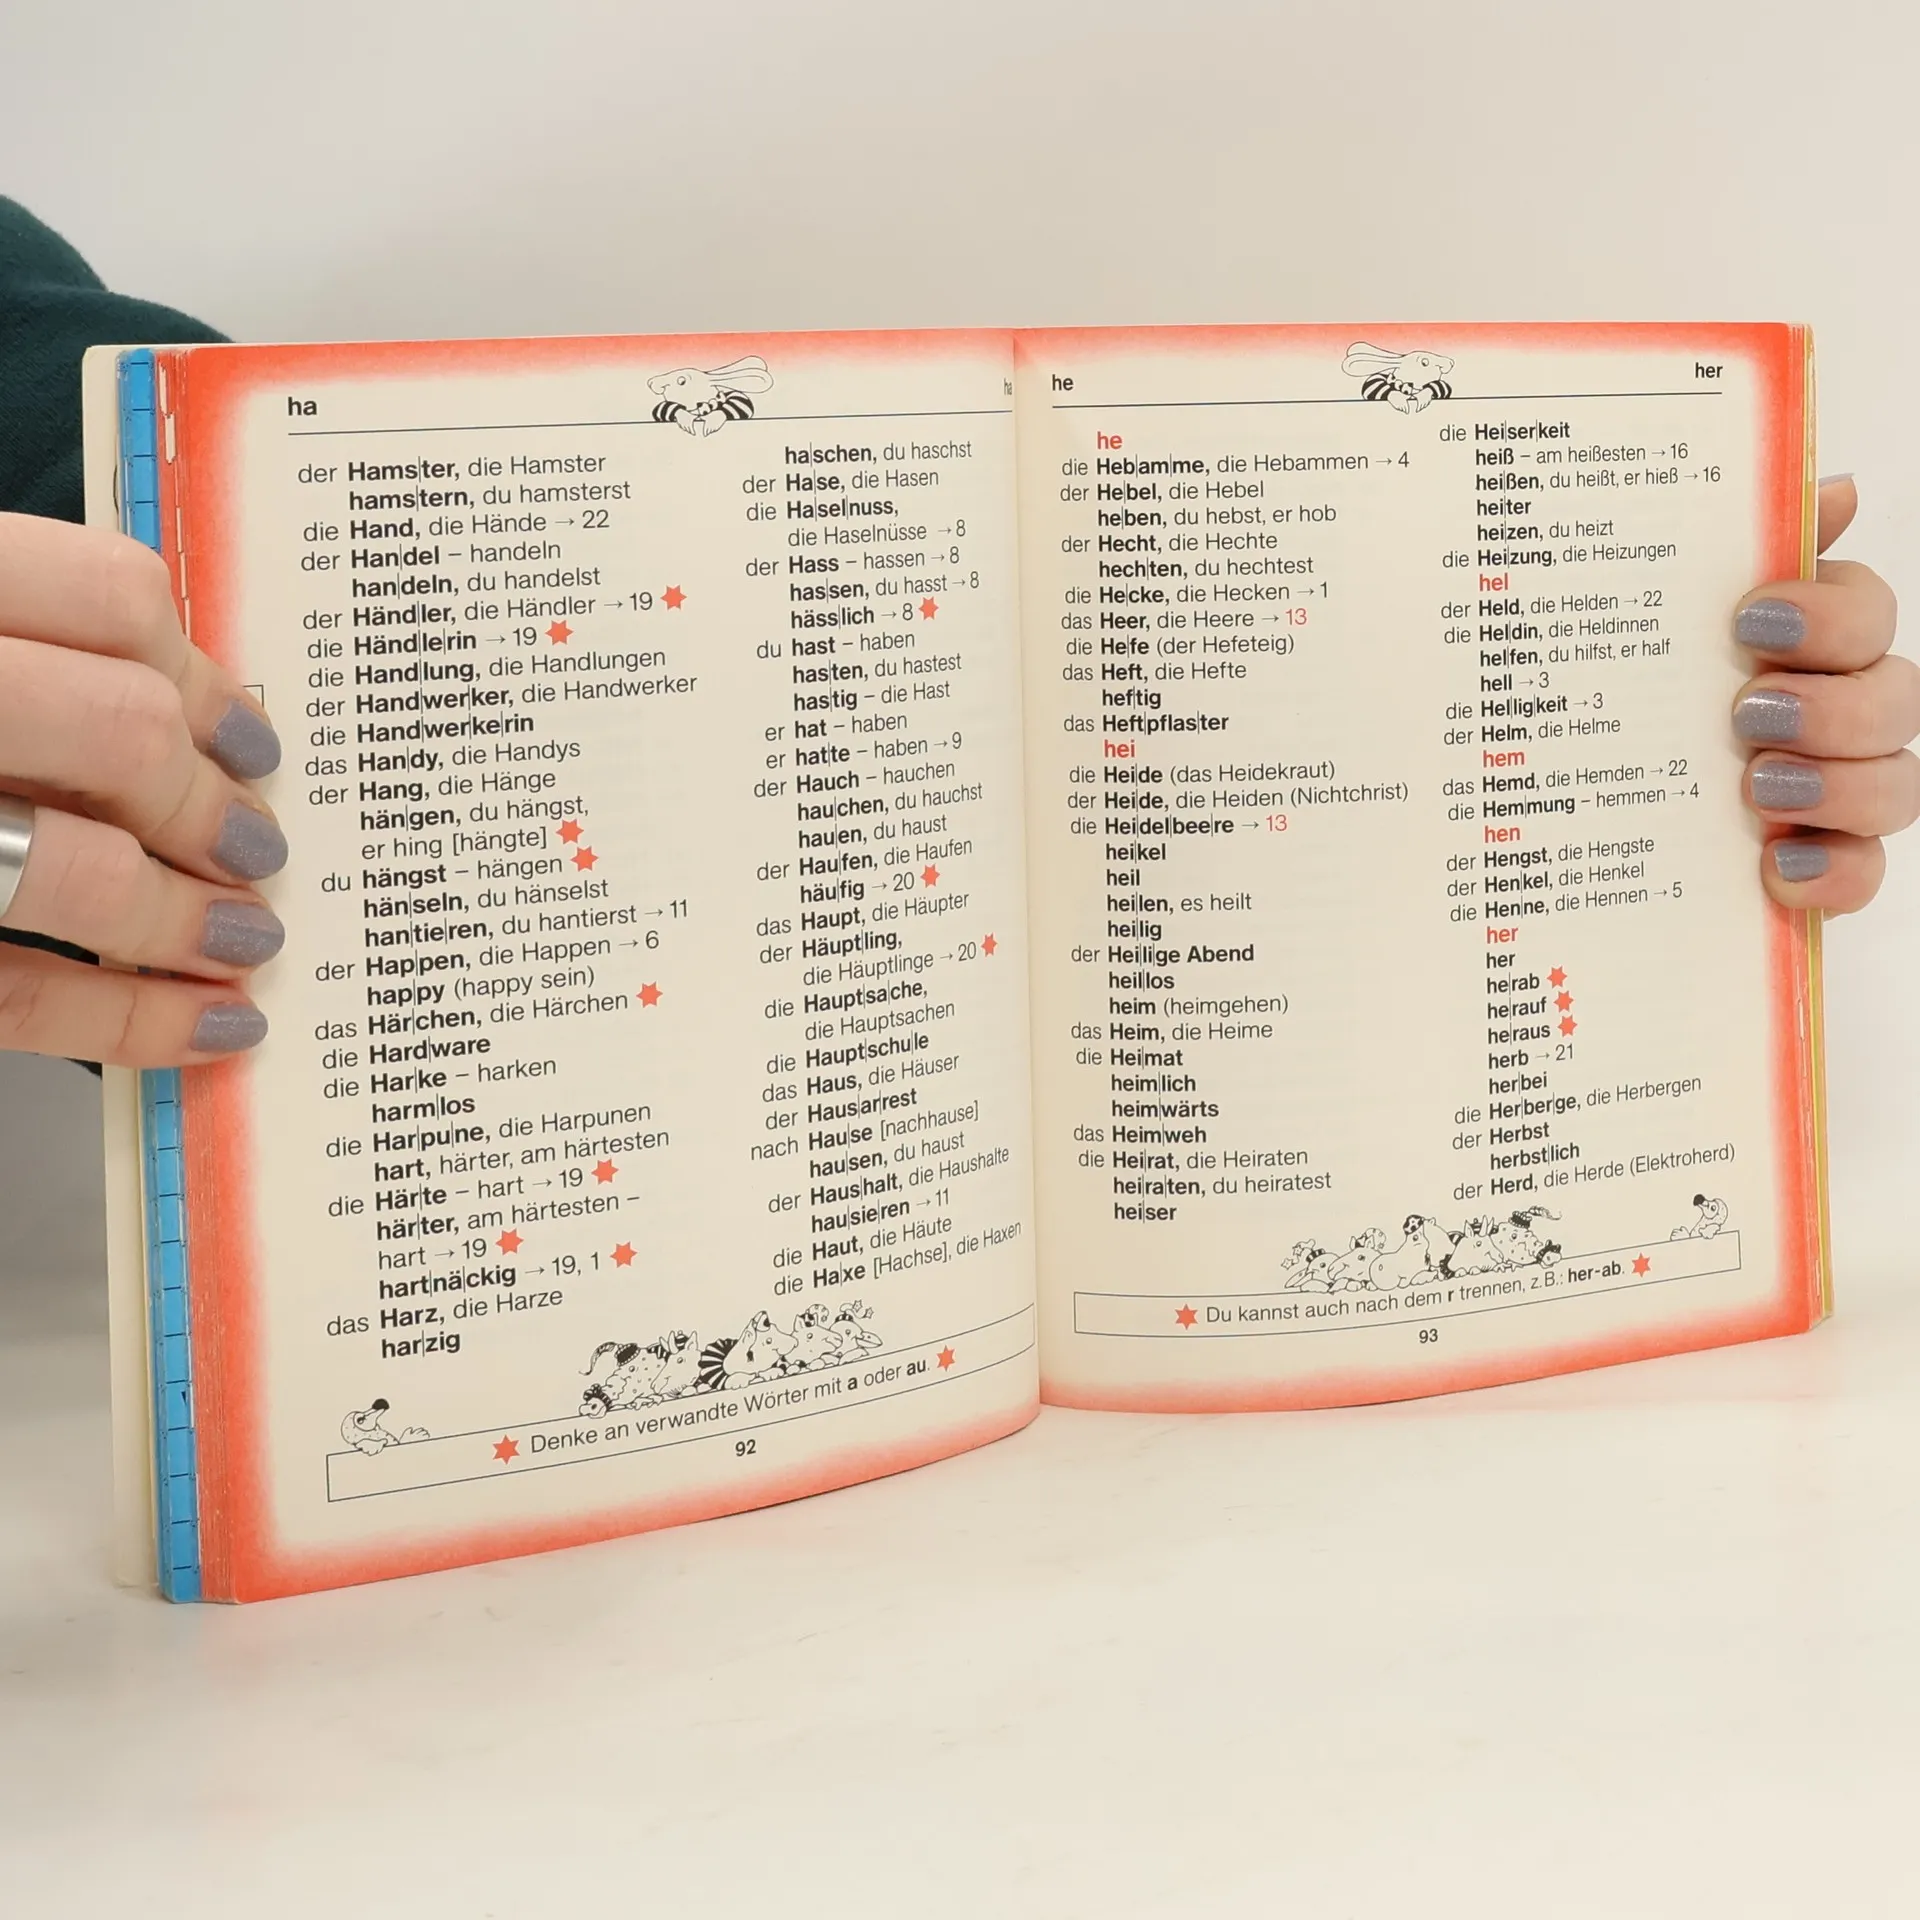 ha
ha
der Hams|ter, die Hamster
hams|tern, du hamsterst
die Hand, die Hände → 22
der Han|del – handeln
han|deln, du handelst
der Händ|ler, die Händler → 19 ✶
die Händ|le|rin → 19 ✶
die Hand|lung, die Handlungen
der Hand|wer|ker, die Handwerker
die Hand|wer|ke|rin
das Han|dy, die Handys
der Hang, die Hänge
hän|gen, du hängst,
er hing [hängte] ✶
du hängst – hängen ✶
hän|seln, du hänselst
han|tie|ren, du hantierst → 11
der Hap|pen, die Happen → 6
hap|py (happy sein)
das Här|chen, die Härchen ✶
die Hard|ware
die Har|ke – harken
harm|los
die Har|pu|ne, die Harpunen
hart, härter, am härtesten
die Här|te – hart → 19 ✶
här|ter, am härtesten –
hart → 19 ✶
hart|nä|ckig → 19, 1 ✶
das Harz, die Harze
har|zig
ha|schen, du haschst
der Ha|se, die Hasen
die Ha|sel|nuss,
die Haselnüsse → 8
der Hass – hassen → 8
has|sen, du hasst → 8
häss|lich → 8 ✶
du hast – haben
has|ten, du hastest
has|tig – die Hast
er hat – haben
er hat|te – haben → 9
der Hauch – hauchen
hau|chen, du hauchst
hau|en, du haust
der Hau|fen, die Haufen
häu|fig → 20 ✶
das Haupt, die Häupter
der Häupt|ling,
die Häuptlinge → 20 ✶
die Haupt|sa|che,
die Hauptsachen
die Haupt|schu|le
das Haus, die Häuser
der Haus|ar|rest
nach Hau|se [nachhause]
hau|sen, du haust
der Haus|halt, die Haushalte
hau|sie|ren → 11
die Haut, die Häute
die Ha|xe [Hachse], die Haxen
✶ Denke an verwandte Wörter mit a oder au. ✶
92
he
her
he
die Heb|am|me, die Hebammen → 4
der He|bel, die Hebel
he|ben, du hebst, er hob
der Hecht, die Hechte
hech|ten, du hechtest
die He|cke, die Hecken → 1
das Heer, die Heere → 13
die He|fe (der Hefeteig)
das Heft, die Hefte
hef|tig
das Heft|pflas|ter
hei
die Hei|de (das Heidekraut)
der Hei|de, die Heiden (Nichtchrist)
die Hei|del|bee|re → 13
hei|kel
heil
hei|len, es heilt
hei|lig
der Hei|li|ge Abend
heil|los
heim (heimgehen)
das Heim, die Heime
die Hei|mat
heim|lich
heim|wärts
das Heim|weh
die Hei|rat, die Heiraten
hei|ra|ten, du heiratest
hei|ser
die Hei|ser|keit
heiß – am heißesten → 16
hei|ßen, du heißt, er hieß → 16
hei|ter
hei|zen, du heizt
die Hei|zung, die Heizungen
hel
der Held, die Helden → 22
die Hel|din, die Heldinnen
hel|fen, du hilfst, er half
hell → 3
die Hel|lig|keit → 3
der Helm, die Helme
hem
das Hemd, die Hemden → 22
die Hem|mung – hemmen → 4
hen
der Hengst, die Hengste
der Hen|kel, die Henkel
die Hen|ne, die Hennen → 5
her
her
he|rab ✶
he|rauf ✶
he|raus ✶
herb → 21
her|bei
die Her|ber|ge, die Herbergen
der Herbst
herbst|lich
der Herd, die Herde (Elektroherd)
✶ Du kannst auch nach dem r trennen, z.B.: her-ab. ✶
93